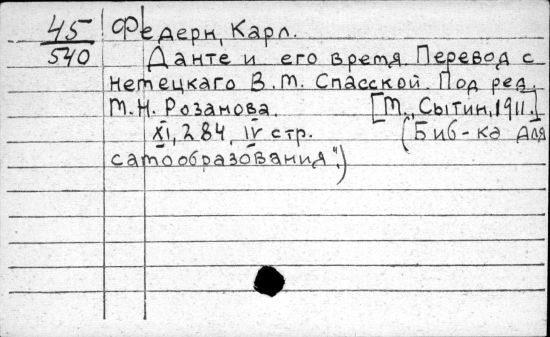 45
540
Федерн, Карл.
Данте и его время. Перевод с
немецкаго В.М. Спасской. Под ред.
М.Н. Розанова. [М., Сытин, 1911.]
XI, 284, IV стр. (Биб-ка для
самообразования".)